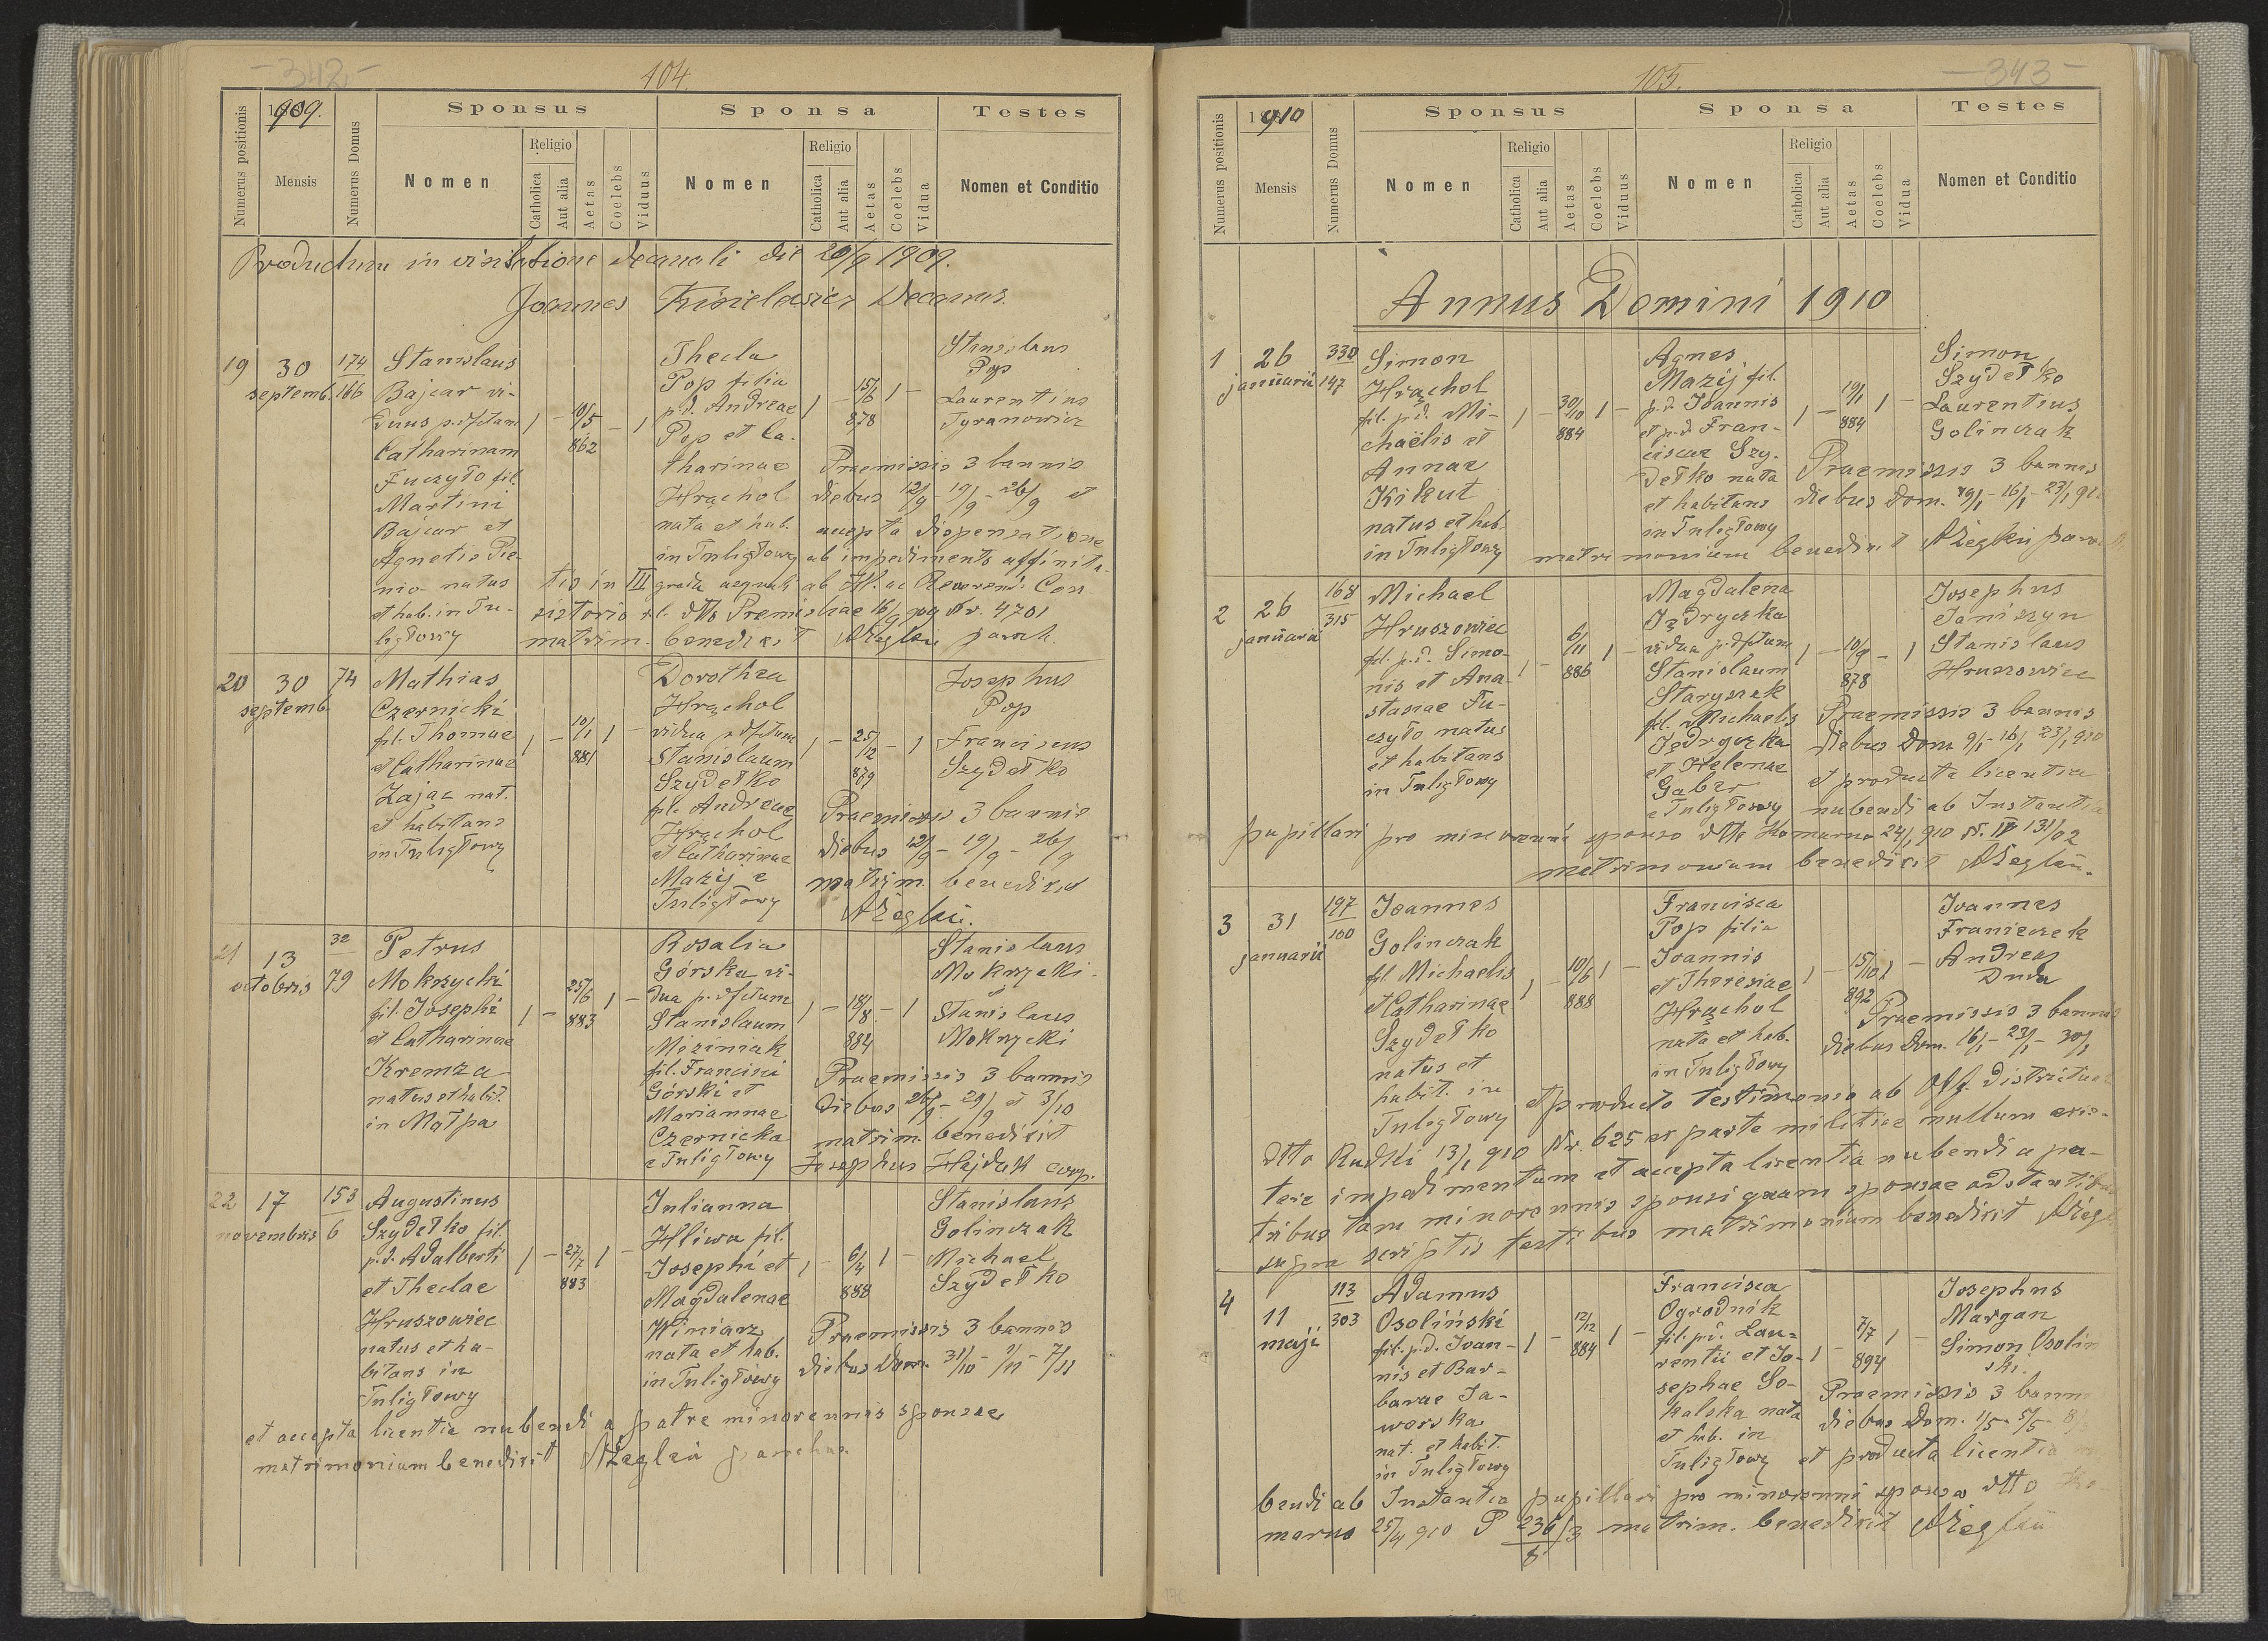 - 342 -
104.
Numerus positionis
1909.
Mensis
Numerus Domus
Sponsus
Sponsa
Testes
Nomen
Religio
Catholica
Aut alia
Aetas
Coelebs
Viduus
Nomen
Religio
Catholica
Aut alia
Aetas
Coelebs
Vidua
Nomen et Conditio
Productum in visitatione decanali die 20/9 1909.
Joannes Kisielewicz Decanus.
19 30 septemb. 174/166
Stanislaus
Bajcar vi-
duus p. dftam
Catharinam
Fuczyło fil.
Martini
Bajcar et
Agnetis Pie-
nio natus
et hab. in Tu-
ligłowy
1 - 10/5 862 - 1
Thecla
Pop filia
p.d. Andreae
Pop et Ca-
tharinae
Hrąchol
nata et hab.
in Tuligłowy
1 - 15/6 878 1 -
Stanislaus
Pop
Laurentius
Tyranowicz
Praemissis 3 bannis
diebus 12/9 - 19/9 - 26/9 et
accepta dispensatione
ab impedimento affinita-
tis in III gradu aequali ab Ill. ac Reverend. Con
sistorio r.l. dtto Premisliae 16/9 909 Nr. 4701
matrim. benedixit AŻegleń paroch.
20 30 septemb. 74
Mathias
Czernicki
fil. Thomae
et Catharinae
Zając nat.
et habitans
in Tuligłowy
1 - 10/1 881 1 -
Dorothea
Hrąchol
vidua p. dftum
Stanislaum
Szydełko
fil. Andreae
Hrąchol
et Catharinae
Mazij e
Tuligłowy
1 - 25/12 879 - 1
Josephus
Pop
Franciscus
Szydełko
Praemissis 3 bannis
diebus 12/9 - 19/9 - 26/9
matrim. benedixit
AŻegleń.
21 13 octobris 32/79
Petrus
Mokrzycki
fil. Josephi
et Catharinae
Kremza
natus et habit.
in Małpa
1 - 25/6 883 1 -
Rosalia
Górska vi-
dua p. dftum
Stanislaum
Miziniak
fil. Francisci
Górski et
Mariannae
Czernicka
e Tuligłowy
1 - 18/8 884 - 1
Stanislaus
Mokrzycki
Stanislaus
Mokrzycki
Praemissis 3 bannis
diebus 26/9 - 29/9 et 3/10
matrim. benedixit
Josephus Hajduk coop.
22 17 novembris 153/6
Augustinus
Szydełko fil.
p.d. Adalberti
et Theclae
Hruszowiec
natus et ha-
bitans in
Tuligłowy
1 - 27/7 883 1 -
Julianna
Hliwa fil.
Josephi et
Magdalenae
Winiarz
nata et hab.
in Tuligłowy
1 - 6/4 888 1 -
Stanislaus
Golinczak
Michael
Szydełko
Praemissis 3 bannis
diebus Dom. 31/10 - 1/11 - 7/11
et accepta licentia nubendi a patre minorennis sponsae
matrimonium benedixit AŻegleń parochus
- 343 -
105.
Numerus positionis
1910
Mensis
Numerus Domus
Sponsus
Sponsa
Testes
Nomen
Religio
Catholica
Aut alia
Aetas
Coelebs
Viduus
Nomen
Religio
Catholica
Aut alia
Aetas
Coelebs
Vidua
Nomen et Conditio
Annus Domini 1910
1 26 januarii 330/147
Simon
Hrąchol
fil. p.d. Mi-
chaëlis et
Annae
Kikut
natus et hab.
in Tuligłowy
1 - 30/10 884 1 -
Agnes
Mazij fil.
p.d. Joannis
et p.d. Fran-
ciscae Szy-
dełko nata
et habitans
in Tuligłowy
1 - 19/1 884 1 -
Simon
Szydełko
Laurentius
Golinczak
Praemissis 3 bannis
diebus Dom. 9/1 - 16/1 - 23/1 910
matrimonium benedixit AŻegleń
2 26 januarii 168/315
Michael
Hruszowiec
fil. p.d. Simo-
nis et Ana-
stasiae Fu-
czyło natus
et habitans
in Tuligłowy
1 - 6/11 886 1 -
Magdalena
Jędryczka
vidua p. dftum
Stanislaum
Staryszek
fil. Michaelis
Jędryczka
et Helenae
Gaber
e Tuligłowy
1 - 10/9 878 - 1
Josephus
Janiszyn
Stanislaus
Hruszowiec
Praemissis 3 bannis
diebus Dom. 9/1 - 16/1 23/1 910
et producta licentia
nubendi ab Instantia
pupillari pro minorenni sponso dtto Komarno 24/1 910 N. IV 131/02
matrimonium benedixit AŻegleń.
3 31 januarii 197/100
Joannes
Golinczak
fil Michaelis
et Catharinae
Szydełko
natus et
habit. in
Tuligłowy
1 - 10/6 888 1 -
Francisca
Pop filia
Joannis
et Theresiae
Hrąchol
nata et hab.
in Tuligłowy
1 - 15/10 892 1 -
Joannes
Franiczek
Andreas
Duda
Praemissis 3 bannis
diebus Dom. 16/1 - 23/1 - 30/1
et producto testimonio ab Off. districtuali
dtto Rudki 13/1 910 Nr. 625 ex parte militiae nullum exis-
tere impedimentum et accepta licentia nubendi a pa-
tribus tam minorennis sponsi quam sponsae adstantibus
supra scriptis testibus matrimonium benedixit
4 11 maji 113/303
Adamus
Osoliński
fil. p.d. Joan-
nis et Bar-
barae Ja-
worska
nat. et habit.
in Tuligłowy
1 - 12/12 884 1 -
Francisca
Ogrodnik
fil. p.d. Lau-
rentii et Jo-
sephae So-
kalska nata
et hab. in
Tuligłowy
1 - 7/7 894 1 -
Josephus
Margan
Simon Osolin
ski.
Praemissis 3 bann
diebus Dom. 1/5 - 5/5 8/
et producta licentia
bendi ab Instantia pupillari pro minorenni sponsa dtto Ko
marno 25/4 910 P 236/8 /3 matrim. benedixit AŻegleń